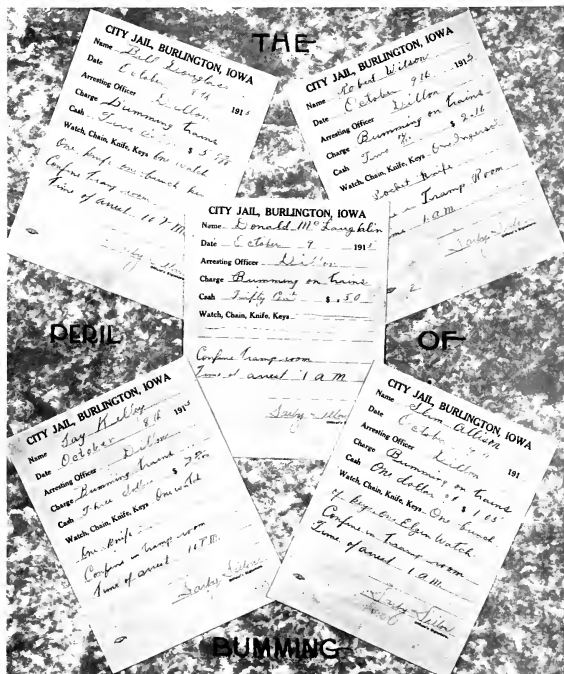 THE
CITY JAIL, BURLINGTON, IOWA
Name Bill Douglas
Date October 9th 191
Arresting Officer Dillon
Charge Bumming trains
Cash Five $ 5
Watch, Chain, Knife, Keys One watch
One knife one bunch keys
Confine Tramp room
Time of arrest 11 P.M.
CITY JAIL, BURLINGTON, IOWA
Name Robert Wilson
Date October 9th 191
Arresting Officer Dillon
Charge Bumming on trains
Cash Two $ 2.16
Watch, Chain, Knife, Keys One Ingersol
Pocket Knife
Tramp Room
1 A.M.
CITY JAIL, BURLINGTON, IOWA
Name Donald McLaughlin
Date October 9 191
Arresting Officer Dillon
Charge Bumming on trains
Cash Fifty Cent $ .50
Watch, Chain, Knife, Keys
Confine Tramp room
Time of arrest 1 A M
PERIL
OF
CITY JAIL, BURLINGTON, IOWA
Name Jay Kelley
Date October 8th 191
Arresting Officer Dillon
Charge Bumming trains
Cash Three $ 3
Watch, Chain, Knife, Keys One watch
One knife
Confine in Tramp room
Time of arrest 11 P.M.
CITY JAIL, BURLINGTON, IOWA
Name Slim Allison
Date October 191
Arresting Officer Dillon
Charge Bumming on trains
Cash One dollar 05 $ 1.05
Watch, Chain, Knife, Keys One bunch
of keys One Elgin Watch
Confine in Tramp room
Time of arrest 1 A M
BUMMING